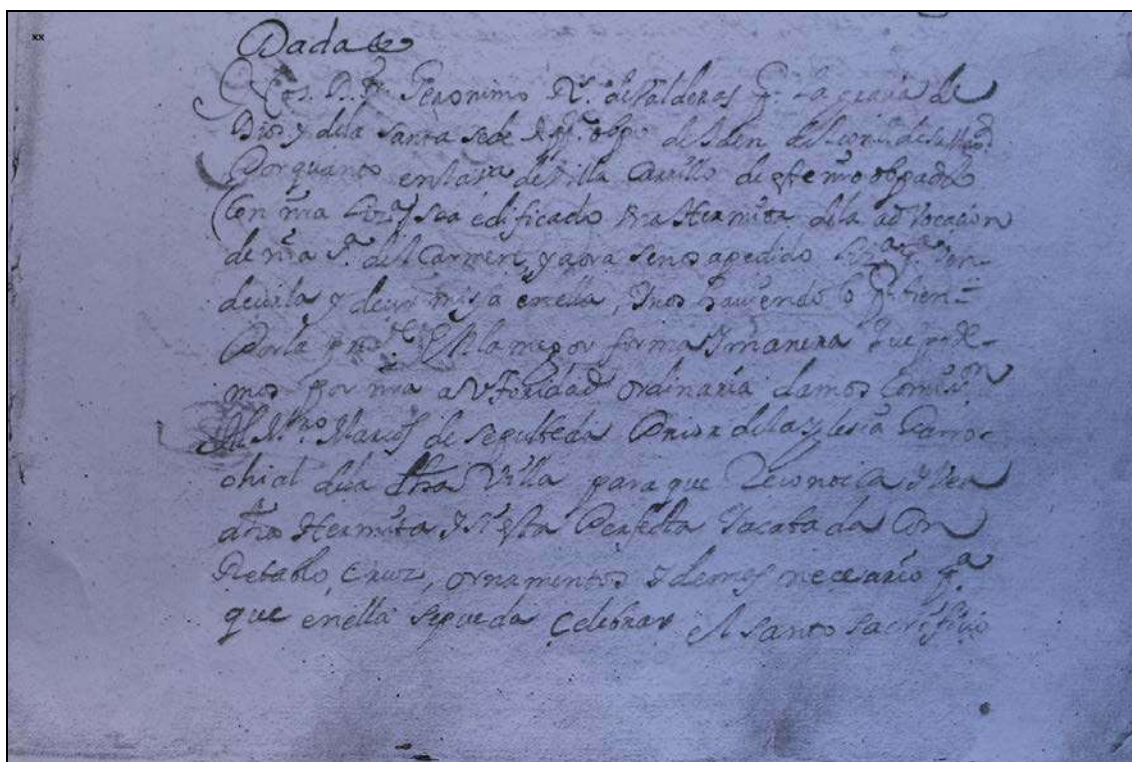 xx
Dada &
Nos D. fr. Geronimo R.s de Valderas Pr. La gracia de
Dios y dela santa sede App.ca obpo de Jaen del Cons.o de su Mag.d
Por quanto en la va de Villa Carrillo de este nro obpado
Con nra liz.a se a edificado Vna Hermita dela advocacion
de nra S.a del Carmen, y aora senos apedido liz.a p.a ven-
decirla y decir misa enella, Y nos haviendo lo p.r bien
Por la pres.te En la mejor forma Y manera Que pode-
mos por nra autoridad ordinaria damos Comis.on
Al M.ro Marcos de sepulbeda Prior dela Yglesia Parro-
chial dela dha Villa para que Reconozca Y Vea
dha Hermita Y si esta Perfecta Yacabada Con
Retablo Cruz, ornamentos Y demas necesario p.a
que enella sepueda Celebrar el santo sacrificio